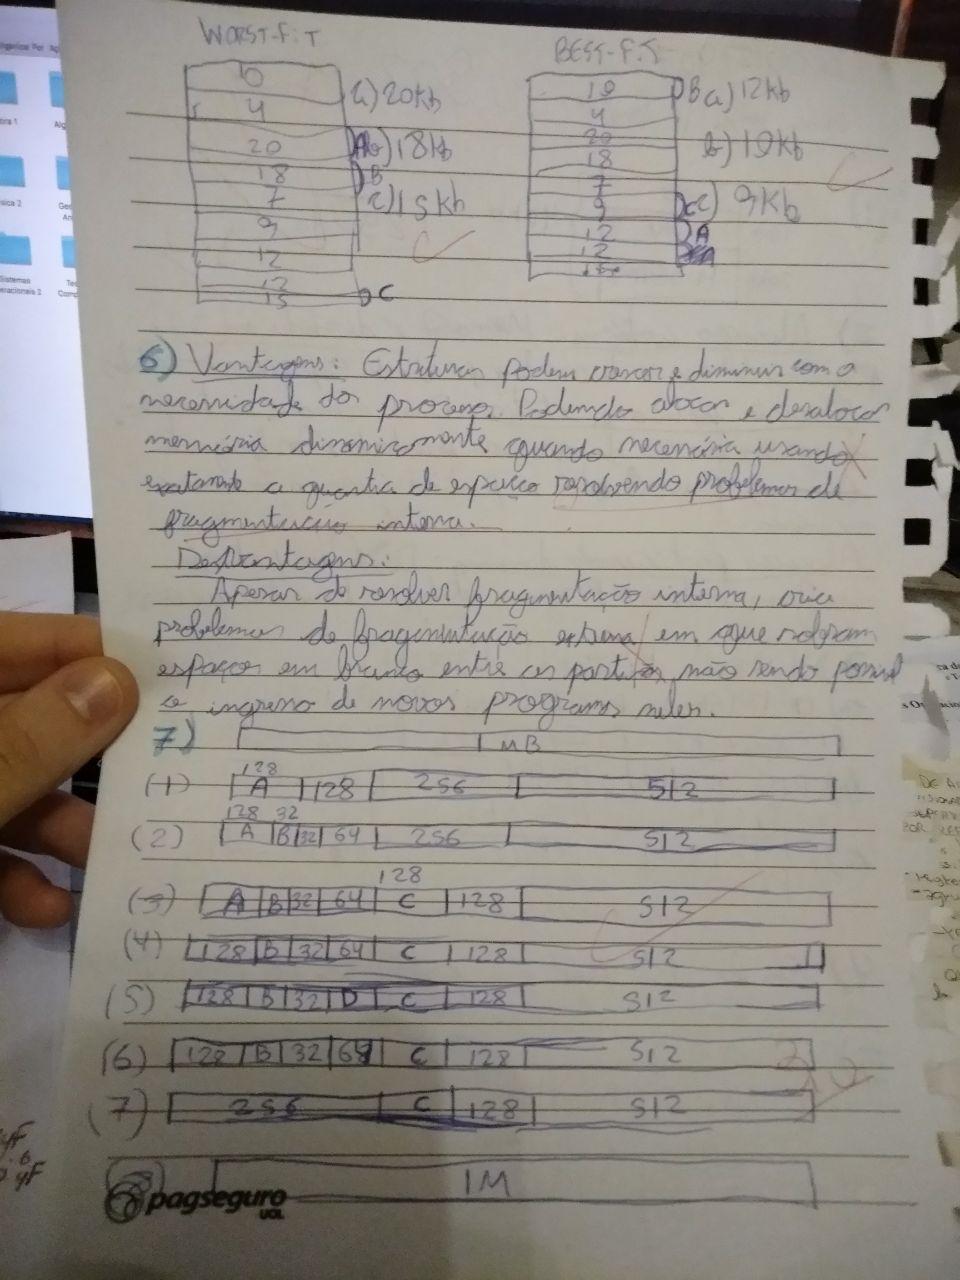 WORST-FIT
10
4
20
18
7
9
12
12
15
a) 20kb
A b) 18kb
B
c) 15kb
C
BEST-FIT
10
4
20
18
7
9
12
12
B a) 12kb
b) 10kb
C c) 9kb
A
6) Vantagens: Estruturas podem crescer e diminuir com a
necessidade do processo. Podendo alocar e desalocar
memória dinamicamente quando necessário usando
exatamente a quantia de espaço resolvendo problemas de
fragmentação interna.
Desvantagens:
Apesar de resolver fragmentação interna, cria
problemas de fragmentação externa em que sobram
espaços em branco entre as partições, não sendo possível
o ingresso de novos programas neles.
7)
1 MB
128
(1) A 128 256 512
128 32
(2) A B 32 64 256 512
128
(3) A B 32 64 C 128 512
(4) 128 B 32 64 C 128 512
(5) 128 B 32 D C 128 512
(6) 128 B 32 64 C 128 512
(7) 256 C 128 512
1M
pagseguro
UOL